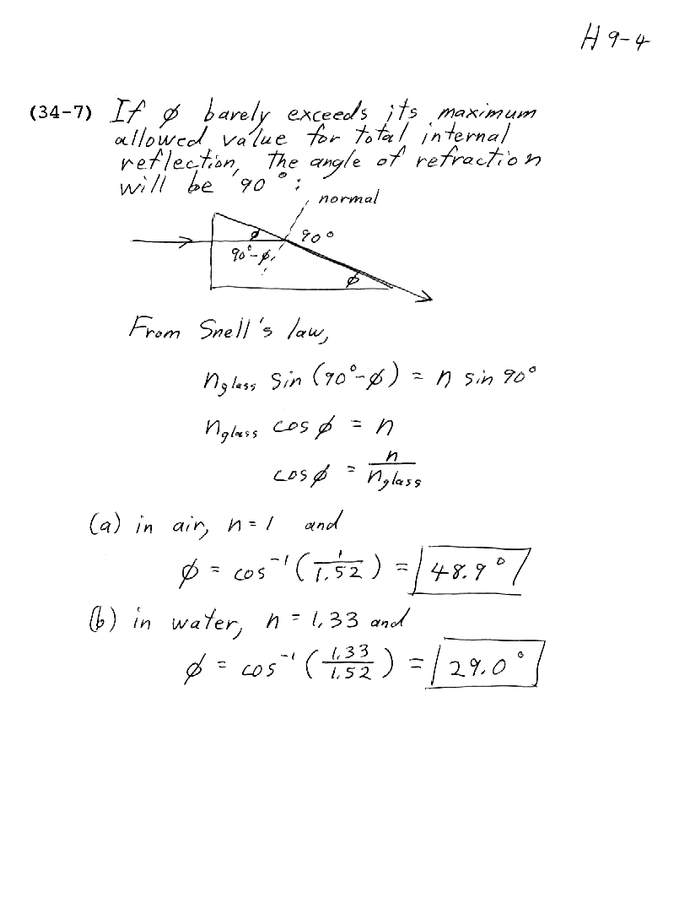 H 9-4
(34-7) If φ barely exceeds its maximum
allowed value for total internal
reflection, the angle of refraction
will be 90°:
normal
φ 90°
90°-φ
φ
From Snell's law,
n_glass sin (90°-φ) = n sin 90°
n_glass cos φ = n
cos φ = n/n_glass
(a) in air, n = 1 and
φ = cos⁻¹ (1/1.52) = 48.9°
(b) in water, n = 1.33 and
φ = cos⁻¹ (1.33/1.52) = 29.0°